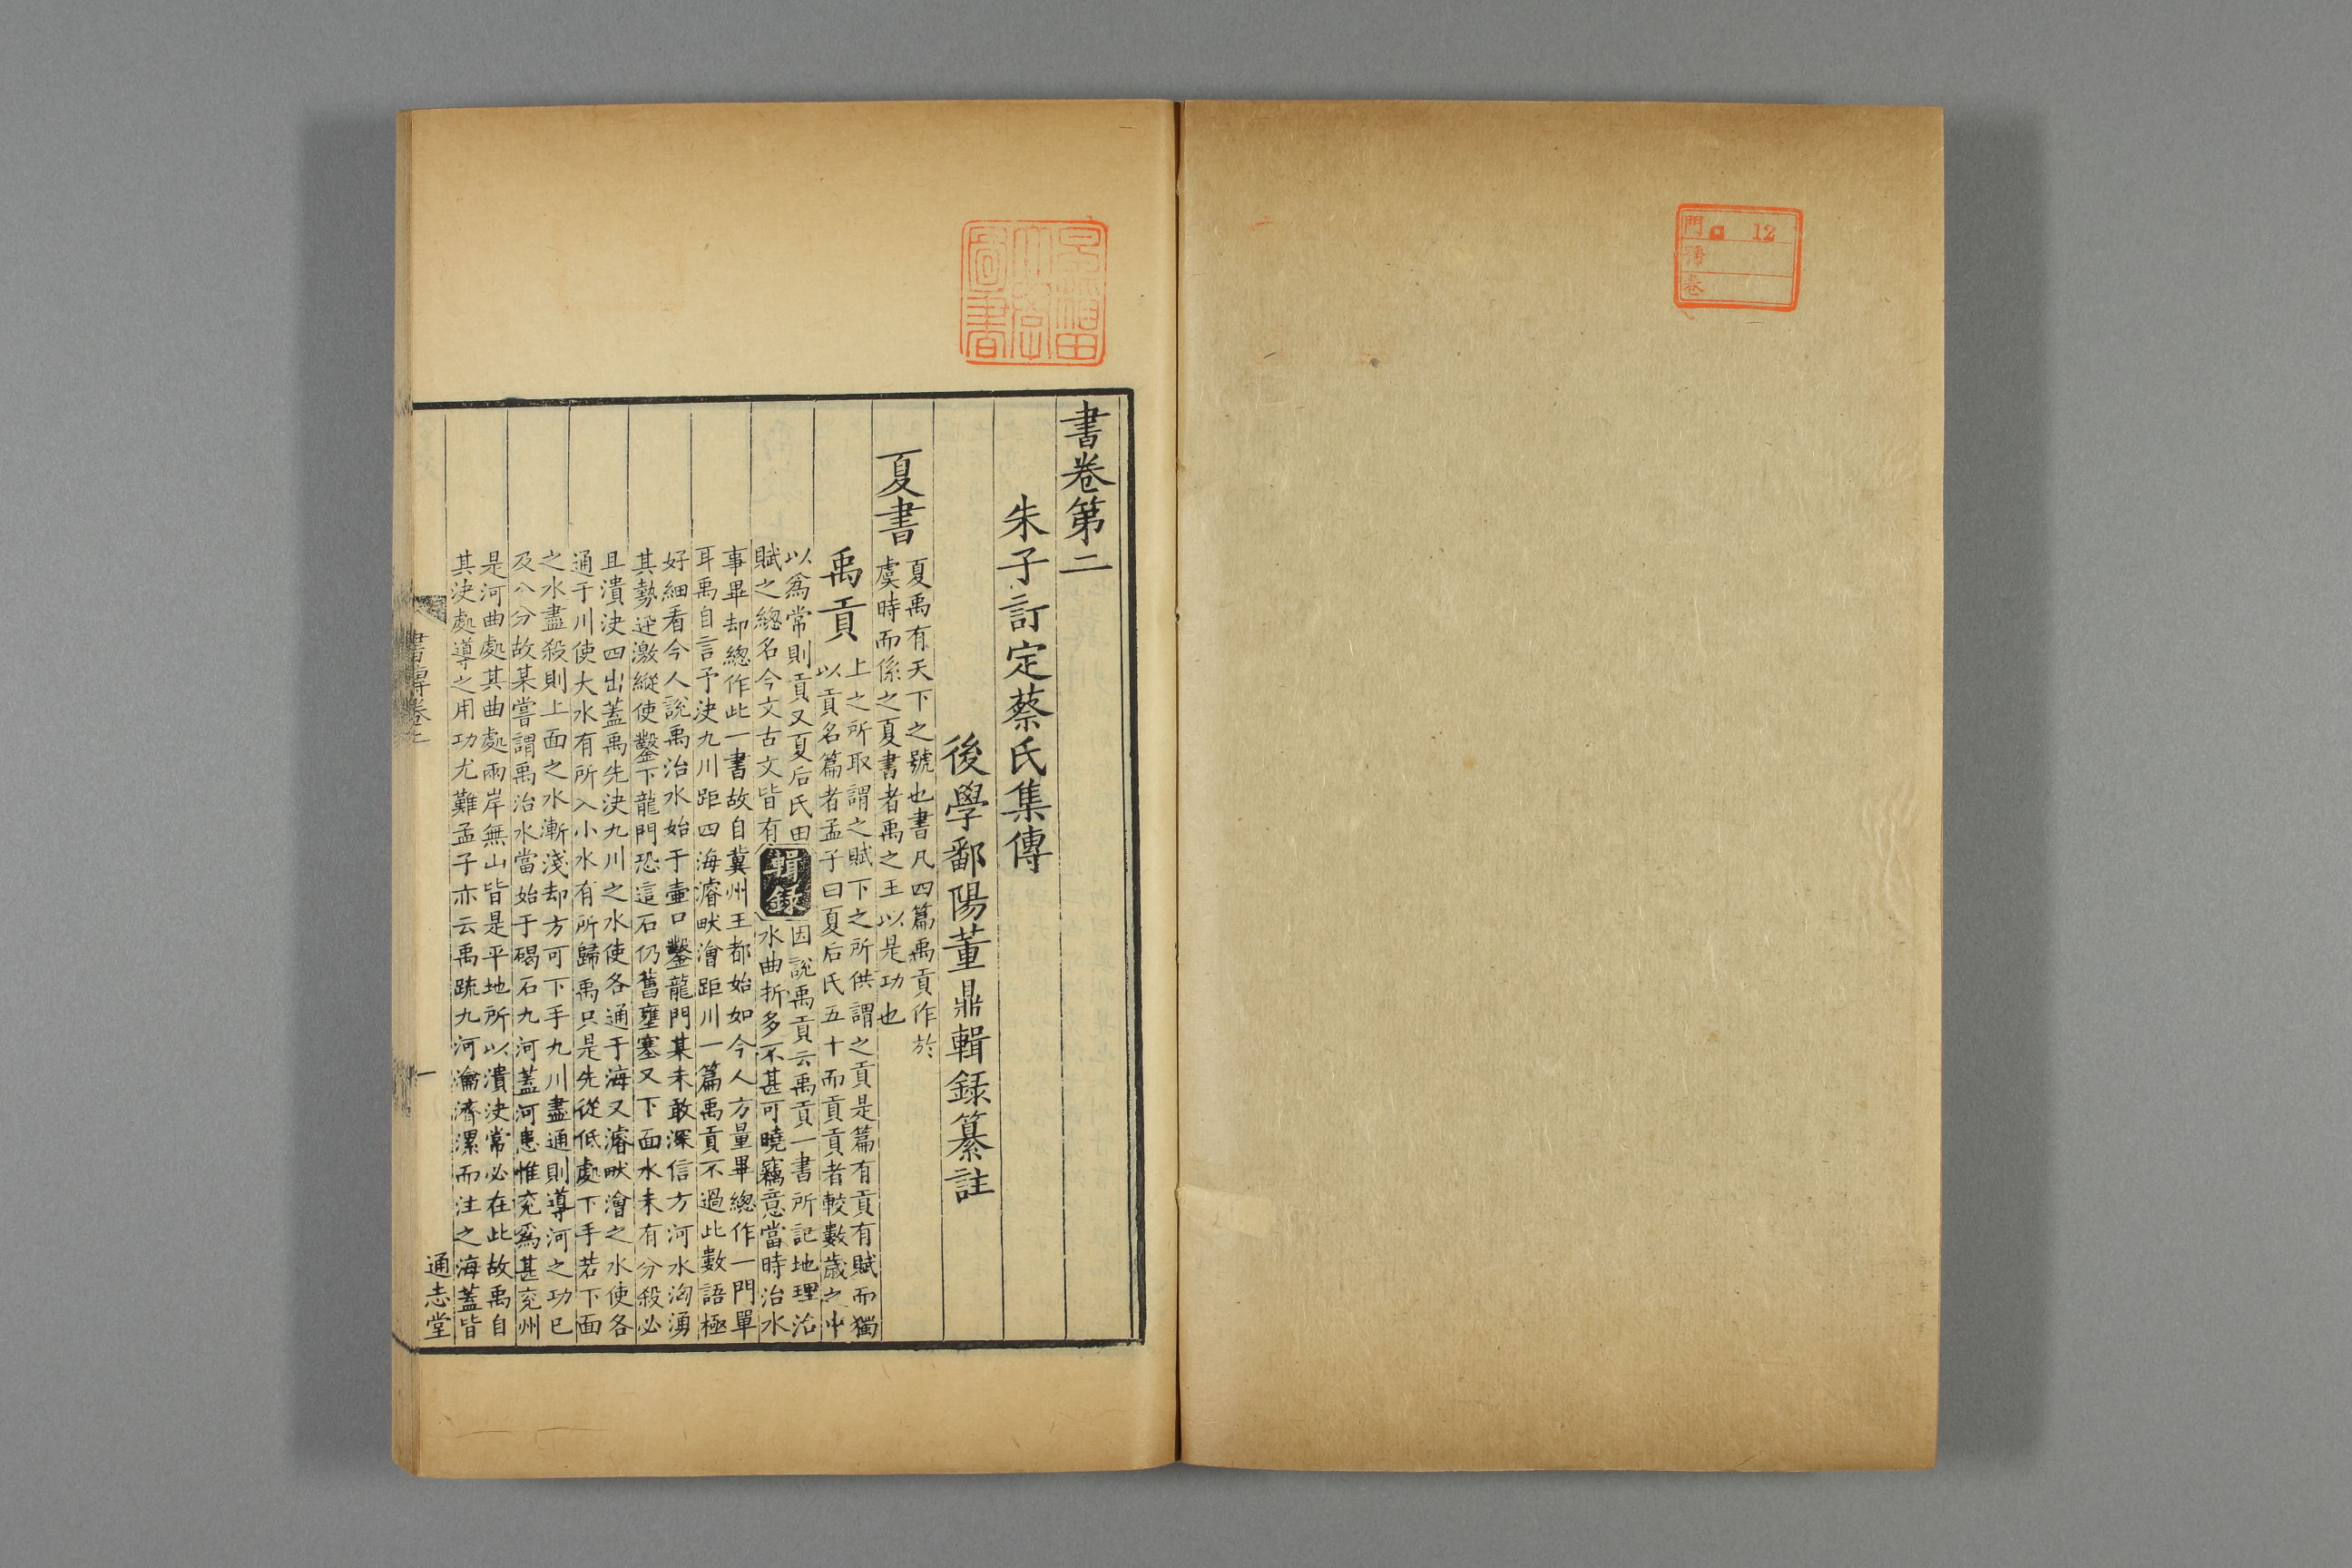 門 12
號
卷
書卷第二
朱子訂定蔡氏集傳
後學鄱陽董鼎輯録纂註
夏書
夏禹有天下之號也書凡四篇禹貢作於
虞時而係之夏書者禹之王以是功也
禹貢
上之所取謂之賦下之所供謂之貢是篇有貢有賦而獨
以貢名篇者孟子曰夏后氏五十而貢貢者較數歳之中
以爲常則貢又夏后氏田
賦之總名今文古文皆有
輯録
因說禹貢云禹貢一書所記地理治
水曲折多不甚可曉竊意當時治水
事畢却總作此一書故自冀州王都始如今人方量畢總作一門單
耳禹自言予決九川距四海濬畎澮距川一篇禹貢不過此數語極
好細看今人說禹治水始于壷口鑿龍門某未敢深信方河水洶湧
其勢迅激縱使鑿下龍門恐這石仍舊壅塞又下面水未有分殺必
且潰決四出蓋禹先決九川之水使各通于海又濬畎澮之水使各
通于川使大水有所入小水有所歸禹只是先從低處下手若下面
之水盡殺則上面之水漸淺却方可下手九川盡通則導河之功已
及八分故某嘗謂禹治水當始于碣石九河蓋河患惟兗爲甚兗州
是河曲處其曲處兩岸無山皆是平地所以潰決常必在此故禹自
其決處導之用功尤難孟子亦云禹疏九河瀹濟漯而注之海蓋皆
書傳卷二
一
通志堂